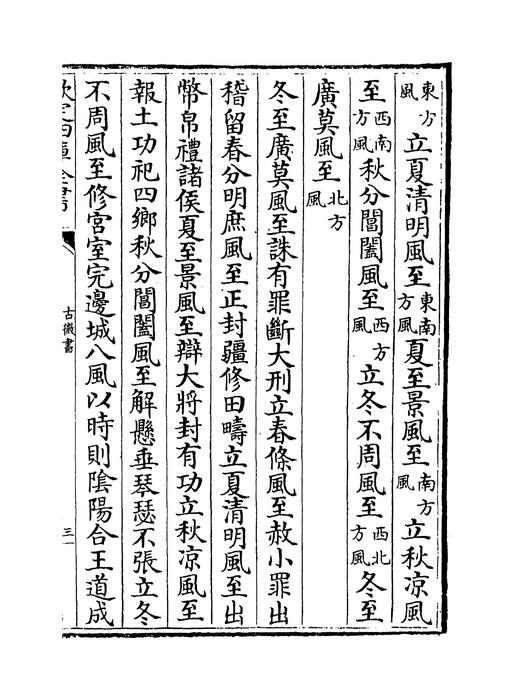 東方風立夏清明風至東南方風夏至景風至南方風立秋凉風
至西南方風秋分閶闔風至西方風立冬不周風至西北方風冬至
廣莫風至北方風
冬至廣莫風至誅有罪斷大刑立春條風至赦小罪出
稽留春分明庶風至正封疆修田疇立夏清明風至出
幣帛禮諸侯夏至景風至辯大將封有功立秋凉風至
報土功祀四鄉秋分閶闔風至解懸垂琴瑟不張立冬
不周風至修宫室完邊城八風以時則隂陽合王道成
欽定四庫全書
古微書
三